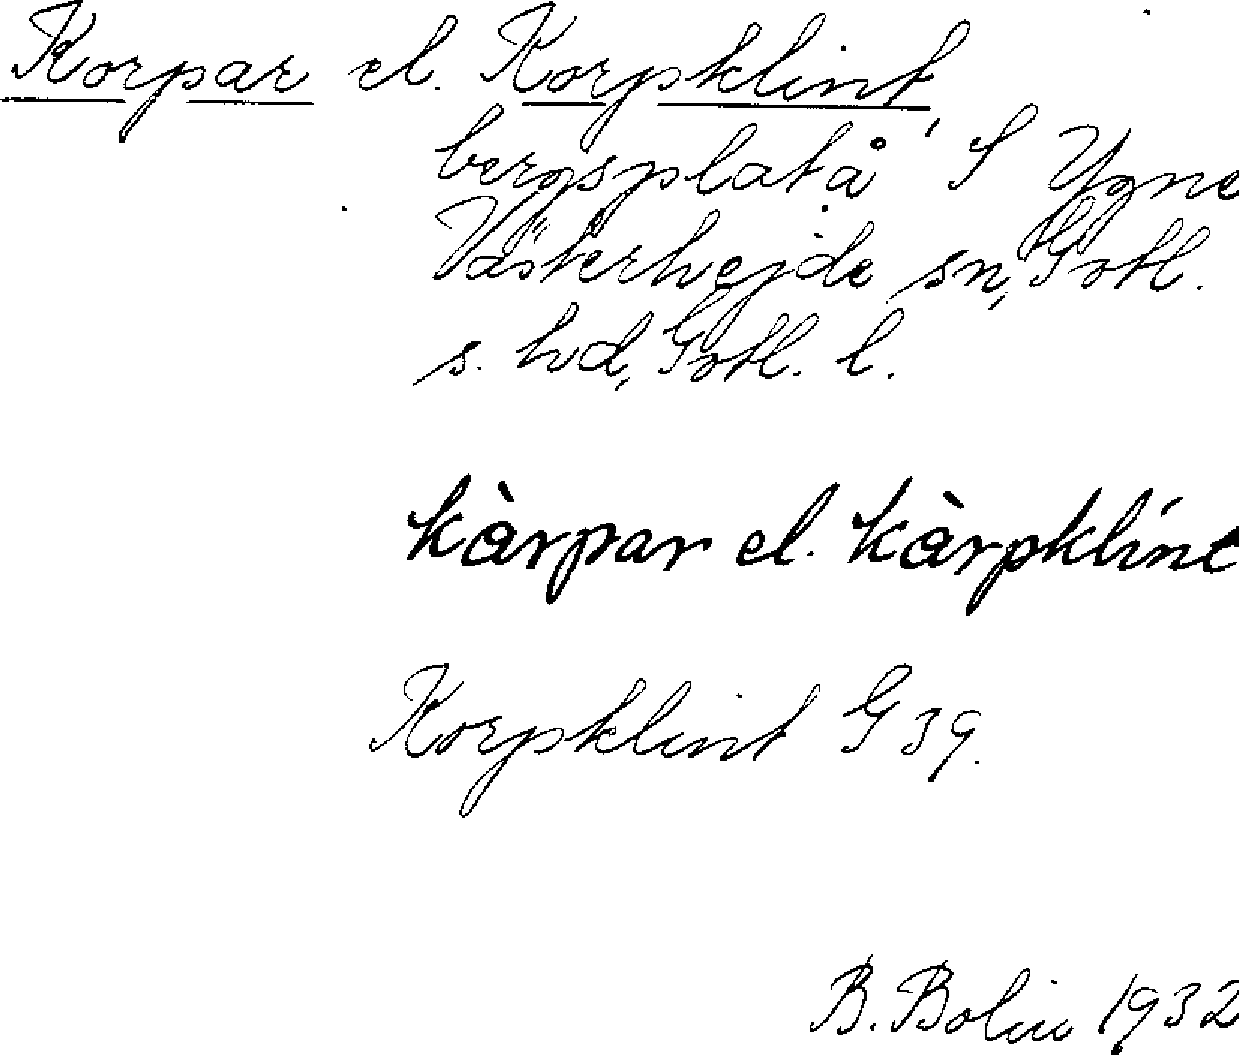 Korpar el. Korpsklint,
bergsplatå S Ygne
Västerhejde sn, Gotl.
s. hd, Gotl. l.
kàrpar el. kàrpklint
Korpsklint G 39.
B. Bolin 1932